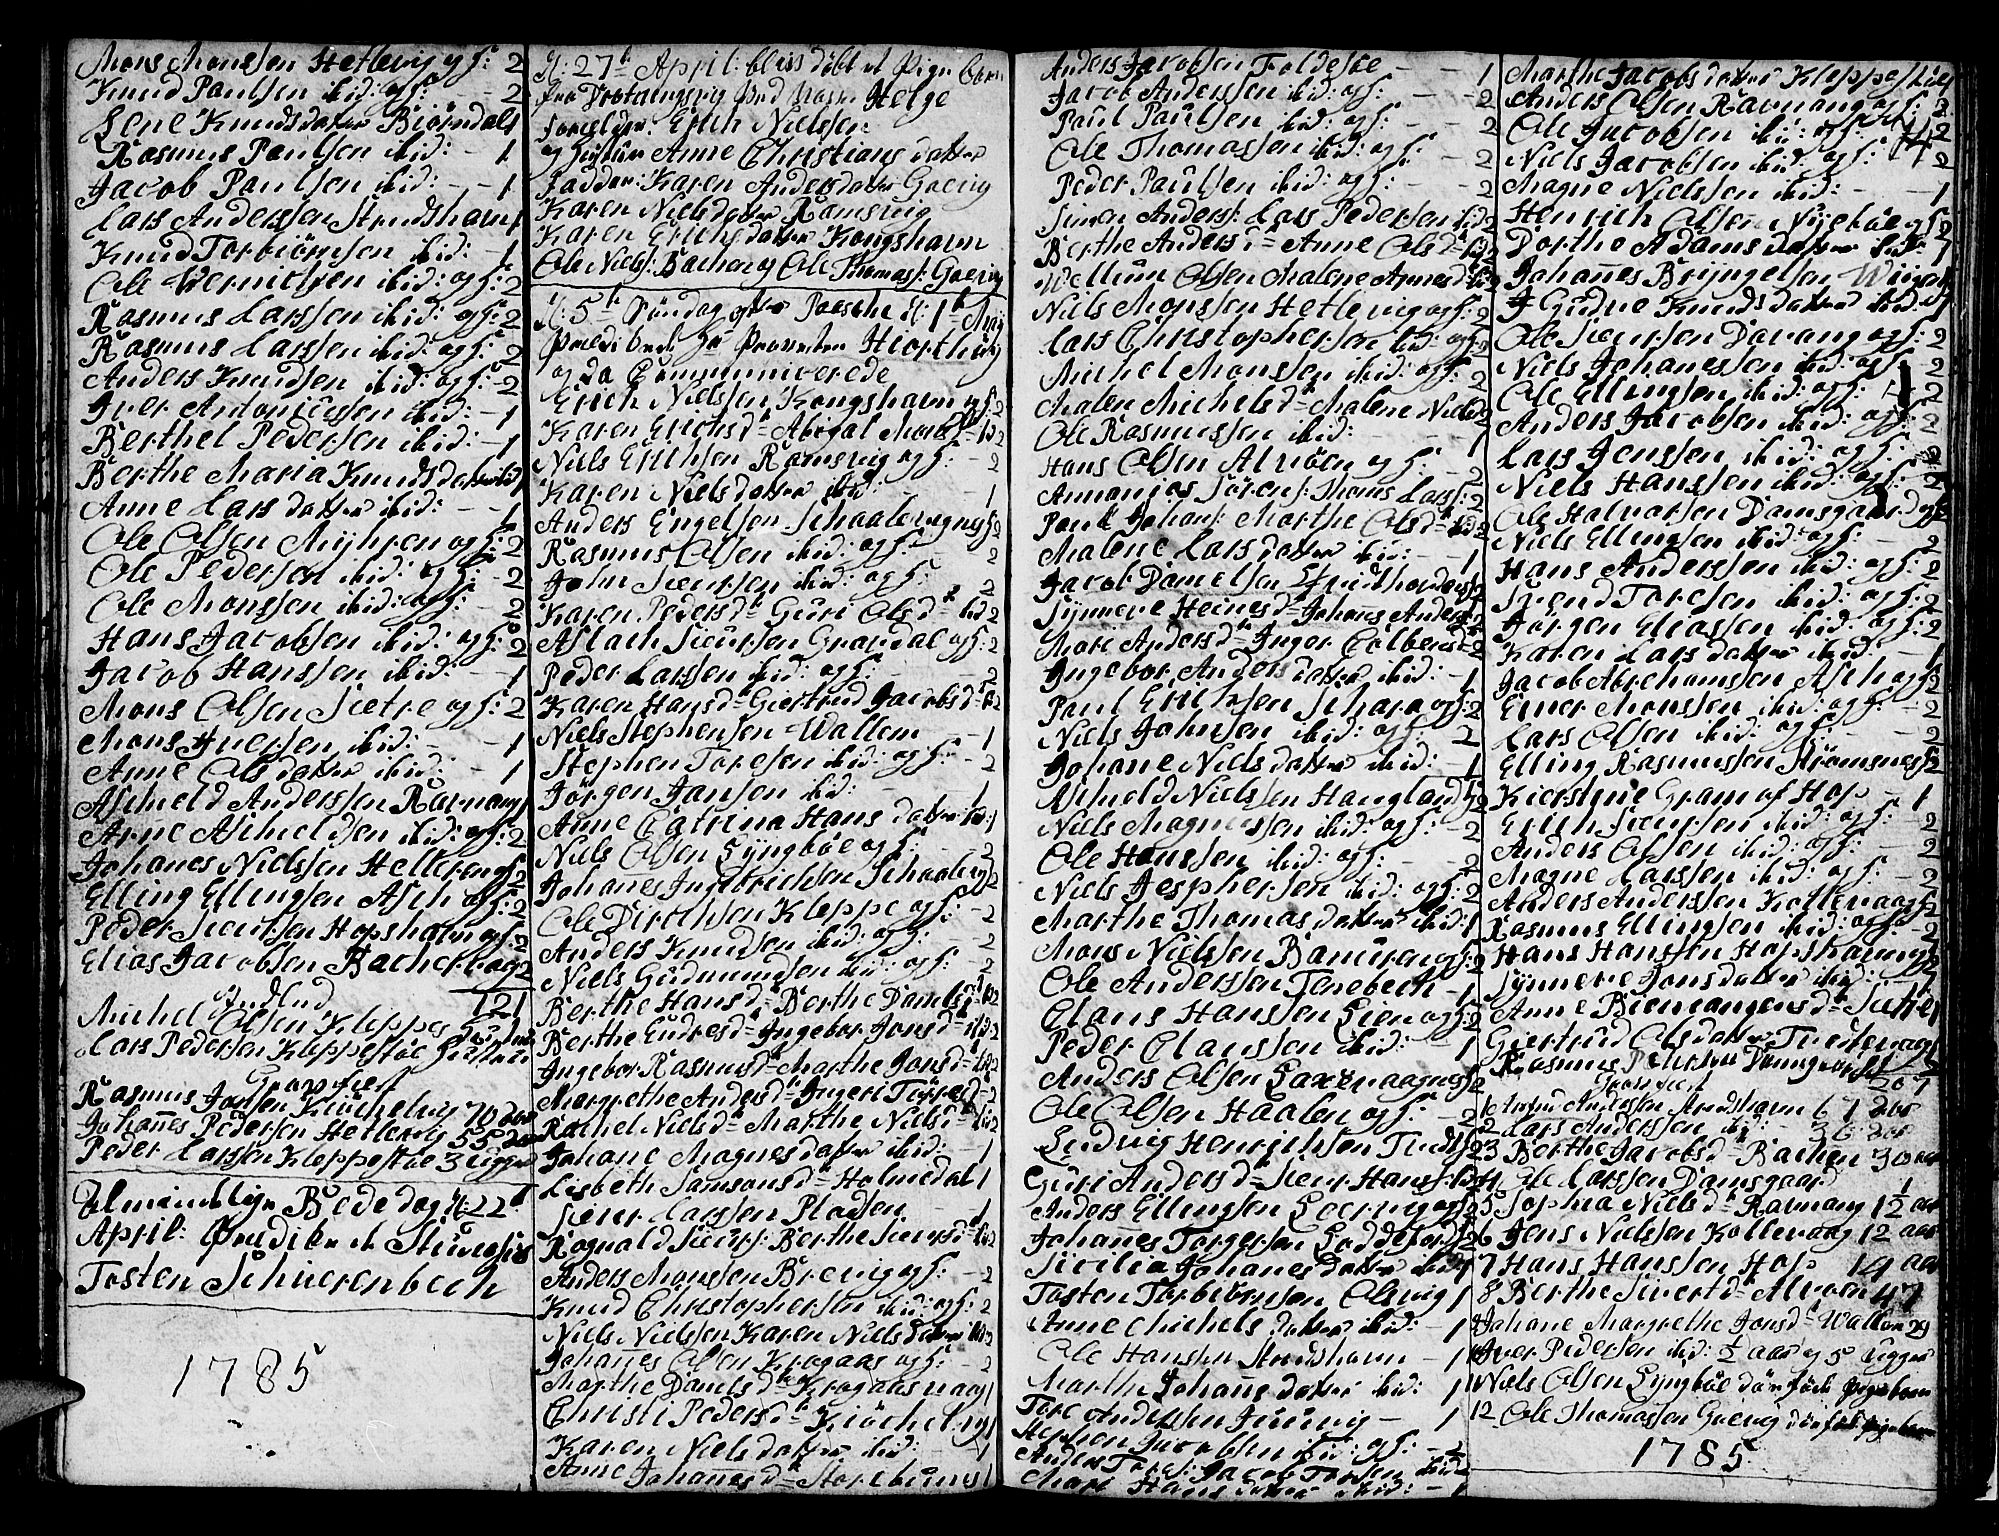 Mons Monssen Hetlevig og H: 2
Knud Paulsen ibid: og H: - 2
Lene Knudsdatter Biørndal 1
Rasmus Paulsen ibid: - 1
Jacob Paulsen ibid: - - 1
Lars Anderssen Strudshavn 1
Knud Torbiørnsen ibid: - 1
Ole Vernichsen ibid: og H: 2
Rasmus Larssen ibid: og H: 2
Rasmus Larssen ibid: og H: 2
Anders Knudsen ibid: og H: - 2
Iver Antoniussen ibid: - 1
Berthel Pedersen ibid: - 1
Berthe Maria Knudsdatter ibid 1
Anne Larsdatter ibid: - - 1
Ole Olsen Myhren og H: 2
Ole Pedersen ibid: og H: - 2
Ole Monssen ibid: og H: - 2
Hans Jacobsen ibid: og H: 2
Jacob Hanssen ibid: - 1
Mons Olsen Sætre og H: 2
Mons Iversen ibid: - - 1
Anne Olsdatter ibid: - 1
Askield Anderssen Ravnang
Arne Askieldsen ibid: og H: 2
Johanes Nielssen Helleren og H: 2
Elling Ellingsen Asch og H: 2
Peder Siursen Hopshavn og H: 2
Elias Jacobsen Bacher og 2
121
Indlud
Michel Olsen Kleppe
Lars Pedersen Kleppestøe
Graafæst
Rasmus Jonsen Kiøchelvig 70 aar
Johannes Pedersen Hetlevig 55 aar
Peder Larssen Kleppestøe 3 uger
Almindelign Bededag d: 22
April: Prædiken St:
Tosten Schierenbech
1785

d: 27 April: blev døbt et Pige Barn
fra ved Navn Helge
Forældre: Erich Nielssen
og Hustru Anne Christiansdatter
Faddere: Karen Andersdatter Goevig
Karen Nielsdatter Ramsvig
Karen Erichsdatter Kongshavn
Ole Niels: Bachen og Ole Thomass: Goevig
d: 5 Søndag efter Paasche d: 1 Maij
Prædikede Hr Provsten Hiorthøy
og da Communicerede
Erich Nielssen Kongshavn og H: 2
Karen Erichsd: Abigal Monsd: ibid 2
Niels Erichsen Ramsvig og H: - 2
Karen Nielsdatter ibid: - - 1
Anders Engelsen Schaalevig og H: 2
Rasmus Olsen ibid: og H: - 2
John Siursen ibid: og H: - 2
Karen Pedersd: Guri Olsd: ibid 2
Aslach Siursen Gravdal og H: 2
Peder Larssen ibid: og H: - - 2
Karen Hansd: Giertrud Jacobsd: ib 2
Niels Stephensen Wallem - - 1
Stephen Toresen ibid: - - 2
Jörgen Jansen ibid: - - 1
Anne Catrina Hansdatter ibid 1
Niels Olsen Lyngbøe og H: - 2
Johanes Ingebrichsen Schaalevig 2
Ole Dirichsen Kleppe og H: - 2
Anders Knudsen ibid: og H: - 2
Niels Gudmundsen ibid: og H: - 2
Berthe Hansd: Berthe Danielsd: ib 2
Berthe Endresd: Ingebor Jonsd: ibid 2
Ingebor Rasmusd: Marthe Jonsd: ib 2
Margrethe Andersd: Ingeri Toresd: 2
Rachel Nielsd: Marthe Nielsd: ibid 2
Johane Magnesdatter ibid: - 1
Lisbeth Samsonsd: Holmedal 1
Siver Larssen Pladsen - - 1
Rognald Siurs: Berthe Siursd: ibid 2
Anders Monssen Brevig og H: - 2
Knud Christophersen ibid: og H: 2
Niels Nielssen Karen Nielsdatter ibid 2
Johanes Olsen Krogaas og H: - 2
Marthe Danielsd: Krogaasvaag 1
Christi Pedersd: Kiöchelvig 1
Karen Nielsdatter ibid: - 1
Anne Johanesd: Storebunes 1

Anders Jacobsen Foldesøe - - 1
Jacob Anderssen ibid: og H: - - 2
Paul Paulsen ibid: og H: - - 2
Ole Thomassen ibid: og H: - 2
Peder Paulsen ibid: og H: - - 2
Simon Anders: Lars Pedersen ibid 2
Berthe Andersd: Anne Olsd: ib 2
Wellum Olsen Malene Annesd: ibid
Niels Monssen Hetlevig og H: 2
Lars Christophersen ibid: og H: 2
Michel Monssen ibid: og H: 2
Malen Michelsd: Malene Nielsd: 2
Ole Rasmussen ibid: - - 1
Hans Olsen Alvöen og H: - 2
Annanias Sörens: Thomas Larss: 2
Paul Johans: Marthe Olsd: ibid 2
Malene Larsdatter ibid: - 1
Jacob Danielsen Strudshovden
Synneve Heinesd: Johanes Anders: 2
Mari Andersd: Inger Colbensd: 2
Ingebor Andersdatter ibid: - 1
Paul Erichsen Schara og H: 2
Niels Johnsen ibid: og H: 2
Johane Nielsdatter ibid: - 1
Askield Nielssen Haugland og H: 2
Niels Magnussen ibid: og H: - 2
Ole Hanssen ibid: og H: - - 2
Niels Jespersen ibid: og H: 2
Marthe Thomasdatter ibid: 1
Mons Nielsen Bamren og H: 2
Ole Anderssen Tenebech - 1
Claus Hanssen Lien og H: 2
Peder Claussen ibid: - 1
Anders Olsen Laxevaagnes 2
Ole Olsen Haalen og H: - 2
Ludvig Henrichsen Tvedt 2
Guri Andersd: Siver Hanss: ibid
Anders Ellingsen Loevig og H: 2
Johanes Torgersen Loddefiord 2
Sicilia Johanesdatter ibid 1
Tosten Torbiörnsen Olsvig 1
Anne Michelsdatter ibid: - 1
Ole Hansen Strudshavn - 1
Marthe Johansdatter ibid: 1
Tore Andersen - 1
Stephen Jacobsen ibid: og H: - 2
Anders Tores: Jacob Torsen ibid: 2
Mari Hansdatter ibid: - 1

Marthe Jacobsdatter Kleppestöe 1
Anders Olsen Ravnang og H: 2
Ole Jacobsen ibid: og H: - 2
Niels Jacobsen ibid: og H: - 2
Magne Nielssen ibid: - - 1
Henrich Olsen Nyebøe og H: 2
Dorthe Adamsdatter ibid: 1
Johanes Bryngelsen Wiig
Gudve Knudsdatter ibid: 1
Ole Siursen Davang og H: 2
Niels Johanessen ibid: og H: 2
Ole Ellingsen ibid: og H: - 2
Anders Jacobsen ibid: og H: 2
Lars Jonssen ibid: og H: - 2
Niels Hanssen ibid: og H: 2
Ole Halvorsen Damsgaard og H: 2
Niels Ellingsen ibid: og H: - 2
Hans Anderssen ibid: og H: 2
Svend Toresen ibid: og H: - 2
Jörgen Eliassen ibid: og H: - 2
Karen Larsdatter ibid: - 1
Jacob Abrahamssen Asch og H: 2
Einer Monssen ibid: og H: - 2
Lars Olsen ibid: og H: - 2
Elling Rasmussen Strömsnes 2
Kierstine Gram af Hop - 1
Erich Siursen ibid: og H: - 2
Anders Olsen ibid: og H: - 2
Magne Larssen ibid: og H: - 2
Anders Anderssen Kollevaag 2
Rasmus Ellingsen ibid: og H: - 2
Hans Hanssen Hopshavn og H: 2
Synneve Jonsdatter ibid: - 1
Anne Sætre
Giertrud Olsdatter Tvedtevaag
Rasmus Petersen Damsgaard
207
Graafæst
1 Anderssen Strudshavn 67 aar
2 Lars Anderssen ibid: - 36 aar
3 Berthe Jacobsd: Bachen 30 aar
4 Ole Larssen Damsgaard 1
5 Sophia Nielsd: Ravnang 1½ aar
6 Jens Nielsen Kollevaag 12 aar
7 Hans Hanssen Hop 14 aar
8 Berthe Sivertd: Alvöen 47
Johane Margrethe Jonsd: Wallem 29
Iver Pedersen ibid: ½ aar og 5 uger
Niels Olsen Lyngbøe dødfødt Pigebarn
12 Ole Thomassen Goevig dødfødt Pigebarn
1785